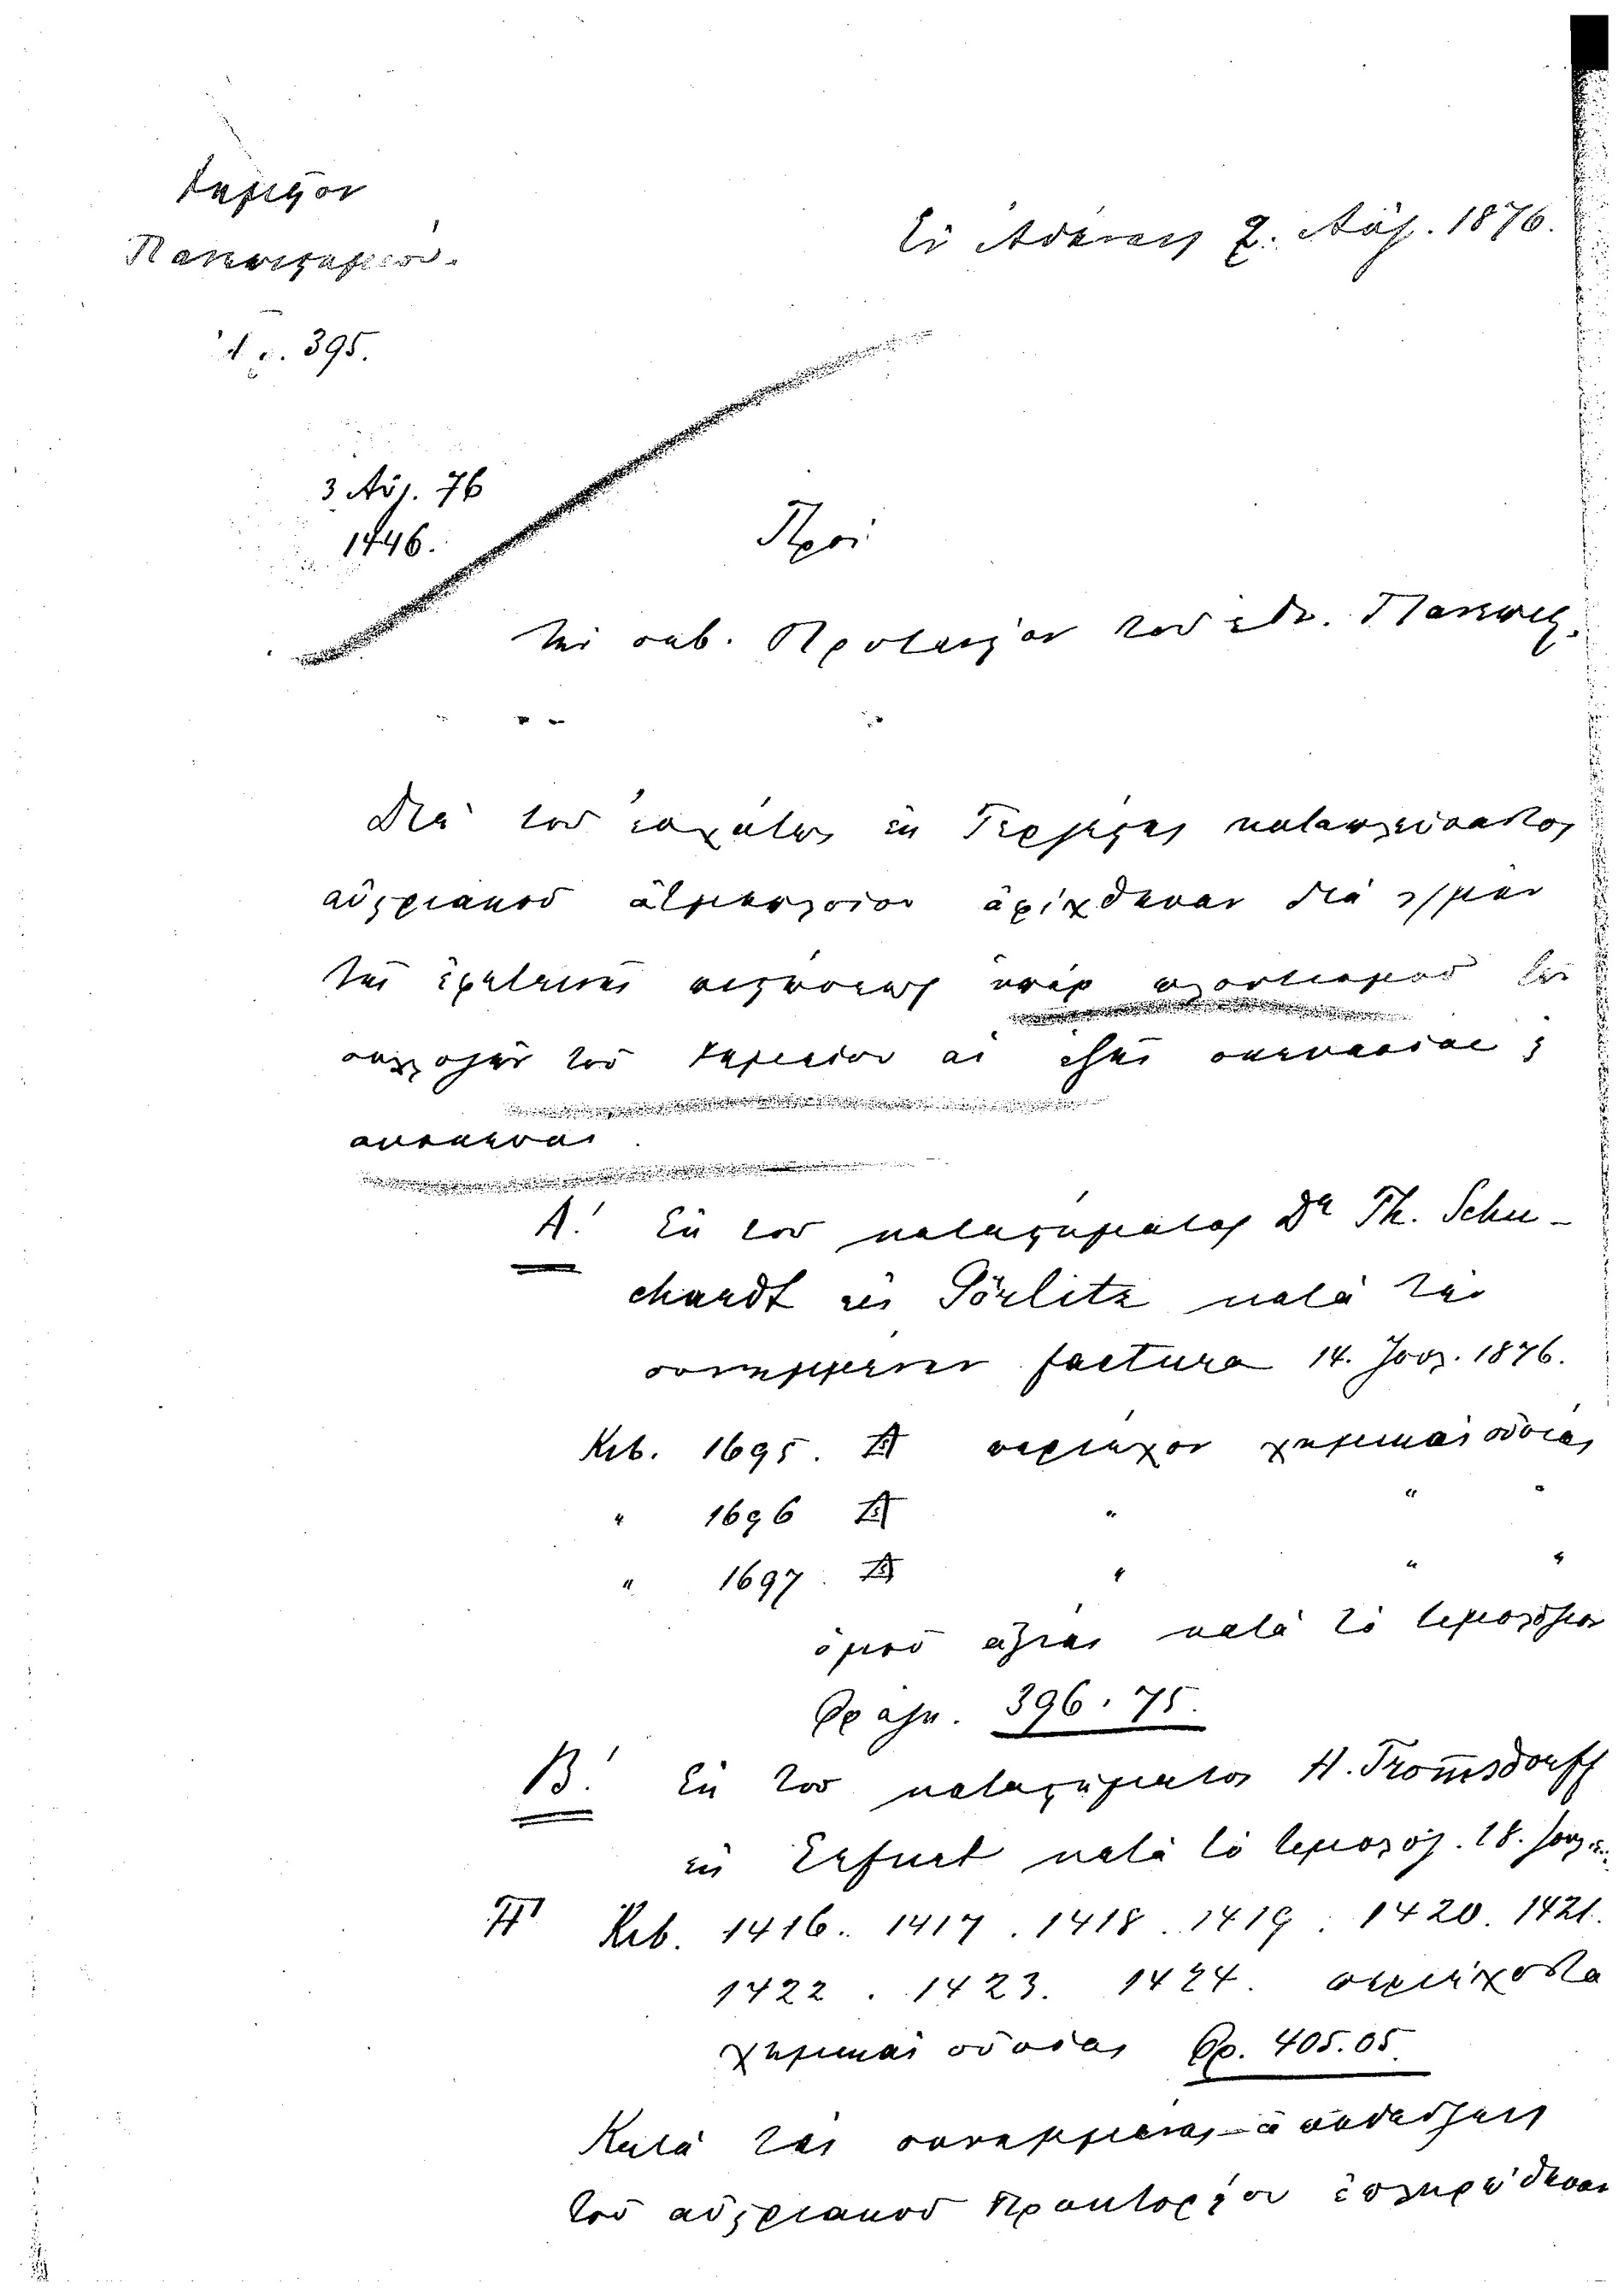 Χημεῖον
Πανεπιστημίου.
Ἀρ. 395.
Ἐν Ἀθήναις 2. Αὐγ. 1876.
3 Αὐγ. 76
1446.
Πρὸς
τὴν σεβ. Πρυτανείαν τοῦ ἐθν. Πανεπιστ.
Διὰ τοῦ ἐσχάτως ἐκ Τεργέστης καταπλεύσαντος
αὐστριακοῦ ἀτμοπλοίου ἀφίχθησαν διὰ
τῆς πιστώσεως ὑπὲρ πλουτισμοῦ τῶν
συλλογῶν τοῦ Χημείου αἱ ἑξῆς
συσκευαί
Α! Ἐκ τοῦ καταστήματος Dr Th. Schu-
chardt εἰς Görlitz κατὰ τὴν
συνημμένην factura 14. Ἰουλ. 1876.
Κιβ. 1695. περιέχον χημικὰς οὐσίας
" 1696 " " "
" 1697 " " "
ὁμοῦ ἀξίας κατὰ τὸ τιμολόγιον
Φράγκ. 396.75.
Β! Ἐκ τοῦ καταστήματος H. Trom̅sdorff
ἐν Erfurt κατὰ τὸ τιμολόγ. 18. Ἰουλ.
H Κιβ. 1416. 1417. 1418. 1419. 1420. 1421.
1422. 1423. 1424. περιέχοντα
χημικὰς οὐσίας Φρ. 405.05.
Κατὰ τὰς συνημμένας ἀποδείξεις
τοῦ αὐστριακοῦ Πρακτορείου ἐπληρώθησαν